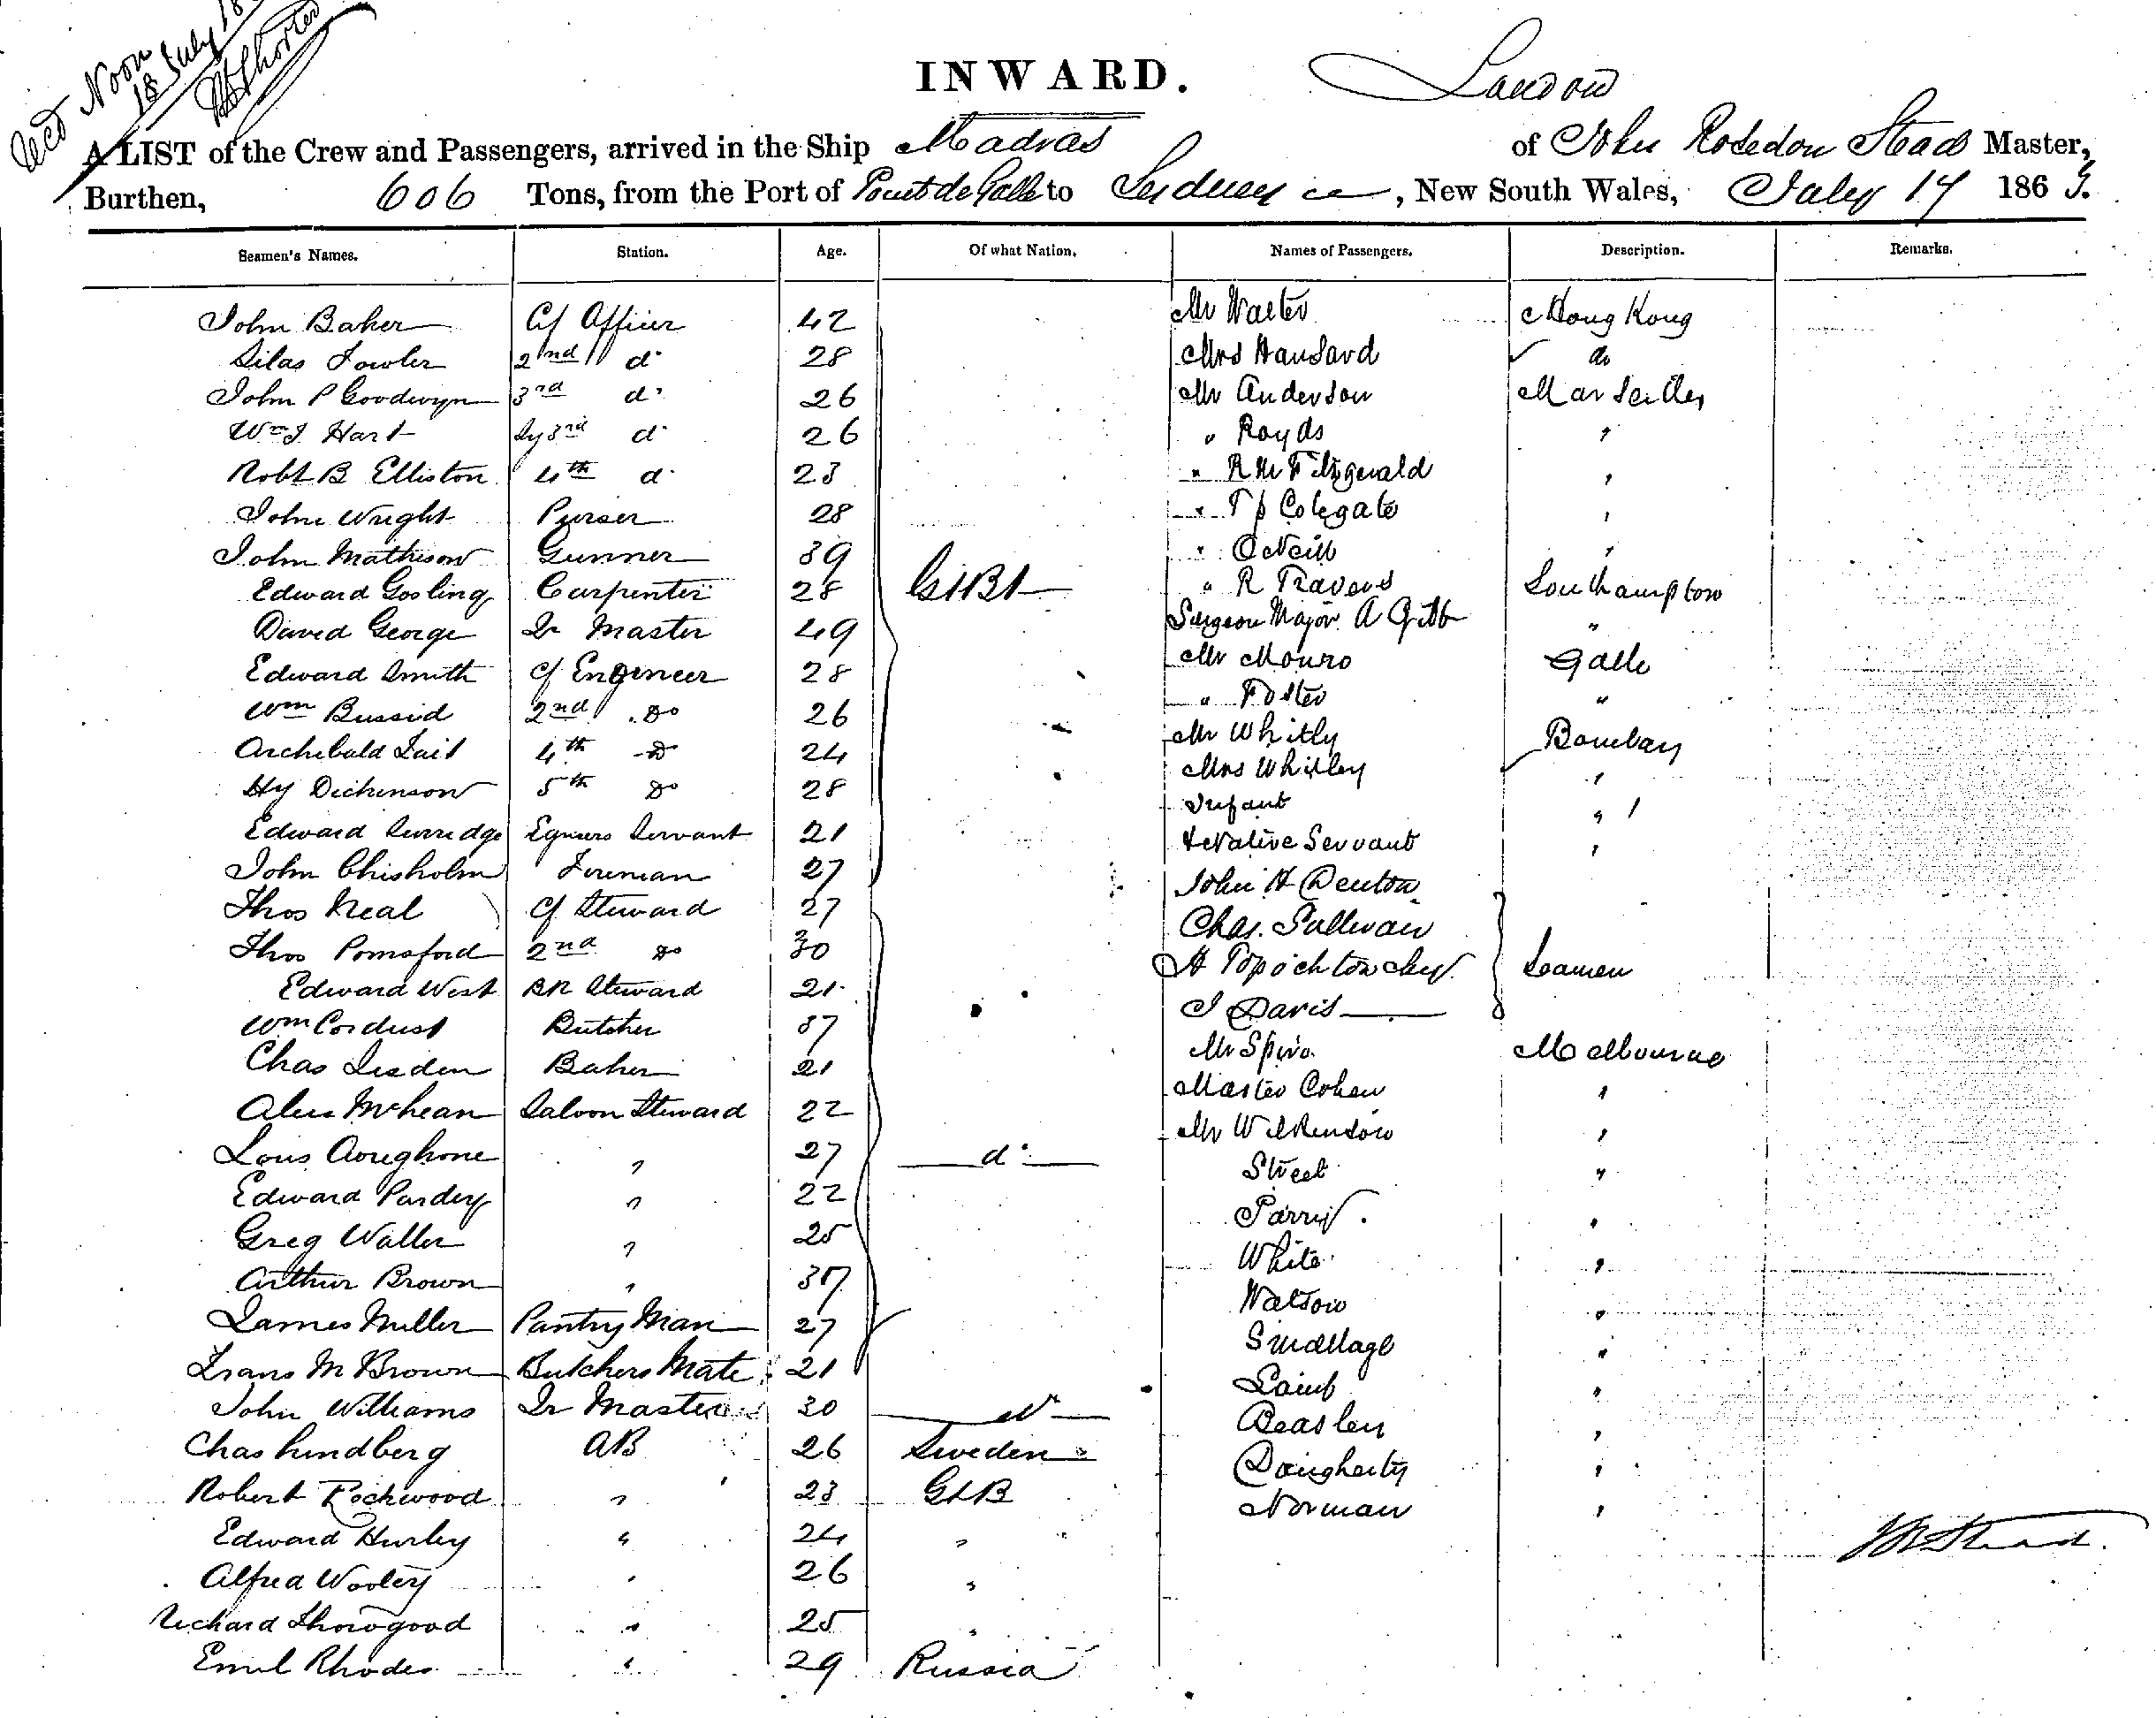 Recd Noon
18 July 18
INWARD.
London
A LIST of the Crew and Passengers, arrived in the Ship Madras of John Rosedon Stead Master,
Burthen, 606 Tons, from the Port of Point de Galle to Sydney, New South Wales, July 17 186
Seamen's Names. Station. Age. Of what Nation. Names of Passengers. Description. Remarks.
John Baker Cf Officer 42 Mr Walter Hong Kong
Silas Fowler 2nd do 28 Mrs Hansard do
John P Goodwyn 3rd do 26 Mr Anderson Marseilles
Wm J Hart Sy 3rd do 26 " Royds "
Robt B Elliston 4th do 23 " R M Fitzgerald "
John Wright Purser 28 " T P Colegate "
John Mathison Gunner 39 " O'Neill "
Edward Gosling Carpenter 28 Gt Bt " R Travers Southampton
David George Qr Master 49 Surgeon Major A Gibb "
Edward Smith Cf Engineer 28 Mr Monro Galle
Wm Bussid 2nd Do 26 " Foster "
Archibald Tait 4th Do 24 Mr Whitly Bombay
Hy Dickinson 5th Do 28 Mrs Whitley "
Edward Surridge Egneers Servant 21 Infant " 1
John Chisholm Fireman 27 & Native Servant "
Thos Neal Cf Steward 27 John H Denton
Thos Pomsford 2nd Do 30 Chas. Sullivan
Edward West BR Steward 21 H Seamen
Wm Cordust Butcher 37 J Davis
Chas Baker 21 Mr Spiro Melbourne
McLean Saloon Steward 22 Master Cohen "
Louis " 27 do Mr Wilkinson "
Edward Pardey " 22 Street "
Greg Waller " 25 Parry "
Arthur Brown " 37 White "
James Miller Pantry Man 27 Watson "
Frans M Brown Butchers Mate 21 Smallage "
John Williams Qr Master 30 do Lamb "
Chas Lundberg AB 26 Sweden Beasley "
Robert Rockwood " 23 Gt B Daugherty "
Edward Hurley " 24 " Norman "
Alfred Wooley " 26 " J R Stead
Richard Thorogood " 25 "
Emil Rhodes " 29 Russia